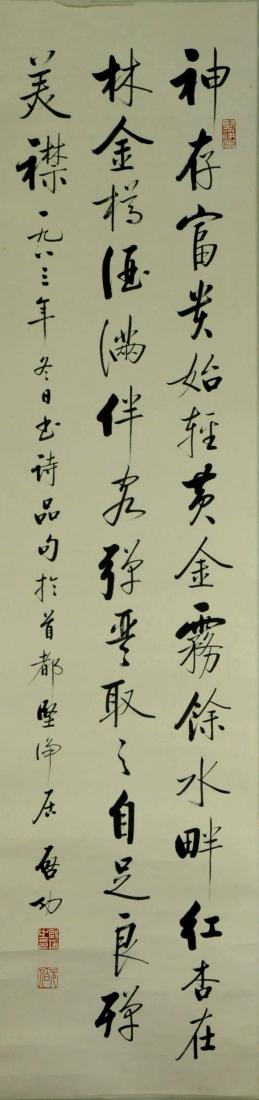 神存富貴始輕黄金霧餘水畔紅杏在
林金樽酒滿伴客弹琴取之自足良殫
美襟一九八三年冬日书诗品句於首都堅净居 启功